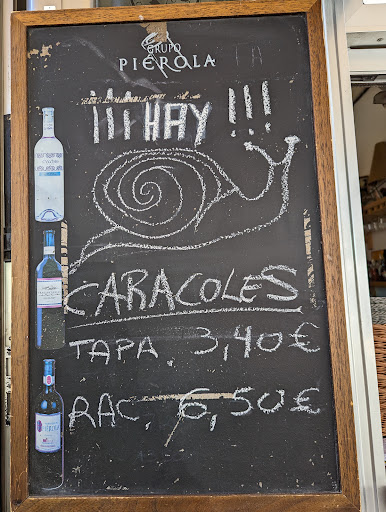 GRUPO
PIÉROLA
¡¡¡HAY!!!
CARACOLES
TAPA. 3,40€
RAC. 6,50€